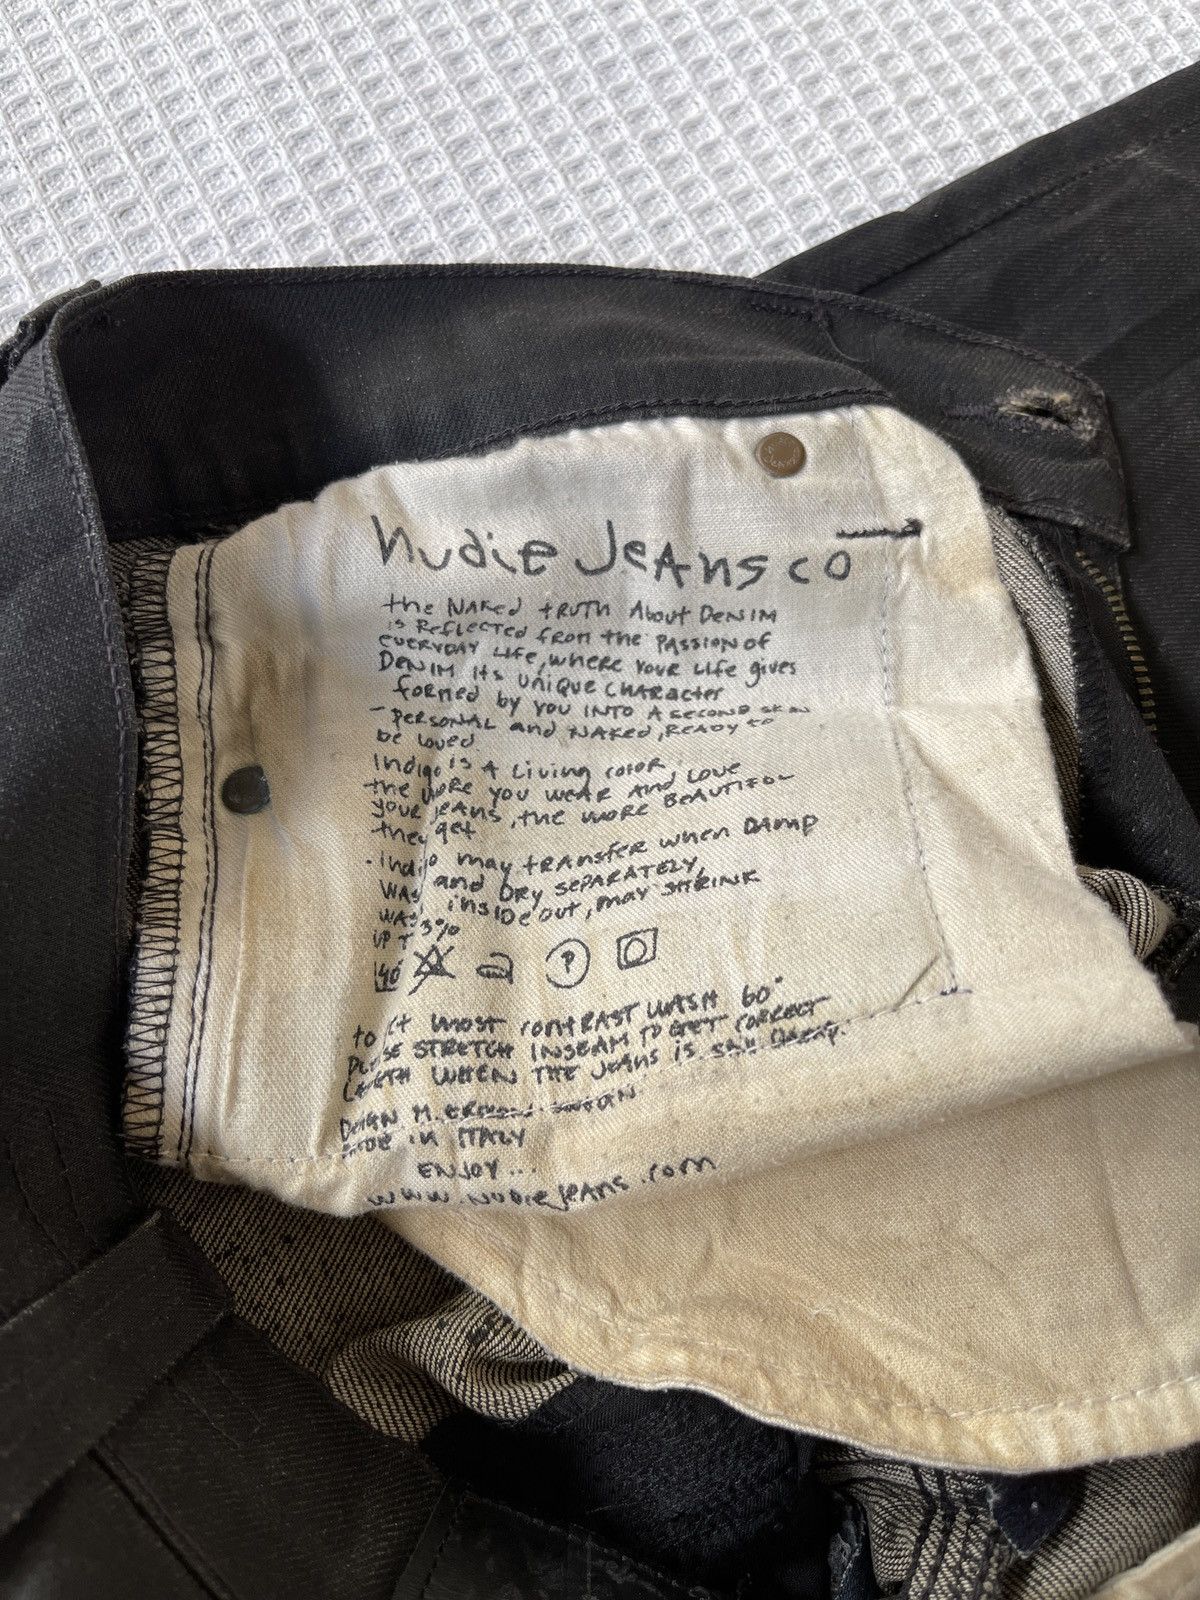 nudie Jeans co
the NAKed tRUTH About DENIM
is Reflected from the PASSION of
EVERYDAY LIFE, WHERE YOUR LIFE gives
DENIM its UNIQUE CHARACTER
formed by YOU INTO A SECOND SKIN
- PERSONAL and NAKED, READY to
be loved.
Indigo is A Living color
the more you wear and Love
your jeans, the more BEAUTIFUL
they get
. Indigo may transfer when DAMP
WASH and DRY SEPARATELY,
WASH inside out, may SHRINK
UP T 3%
40 P
to get most CONTRAST WASH 60°
PLEASE STRETCH INSEAM TO GET CORRECT
LENGTH WHEN THE JEANS IS STILL DAMP.
DESIGN M. ERIXON SWEDEN
MADE IN ITALY
ENJOY...
www.nudiejeans.com